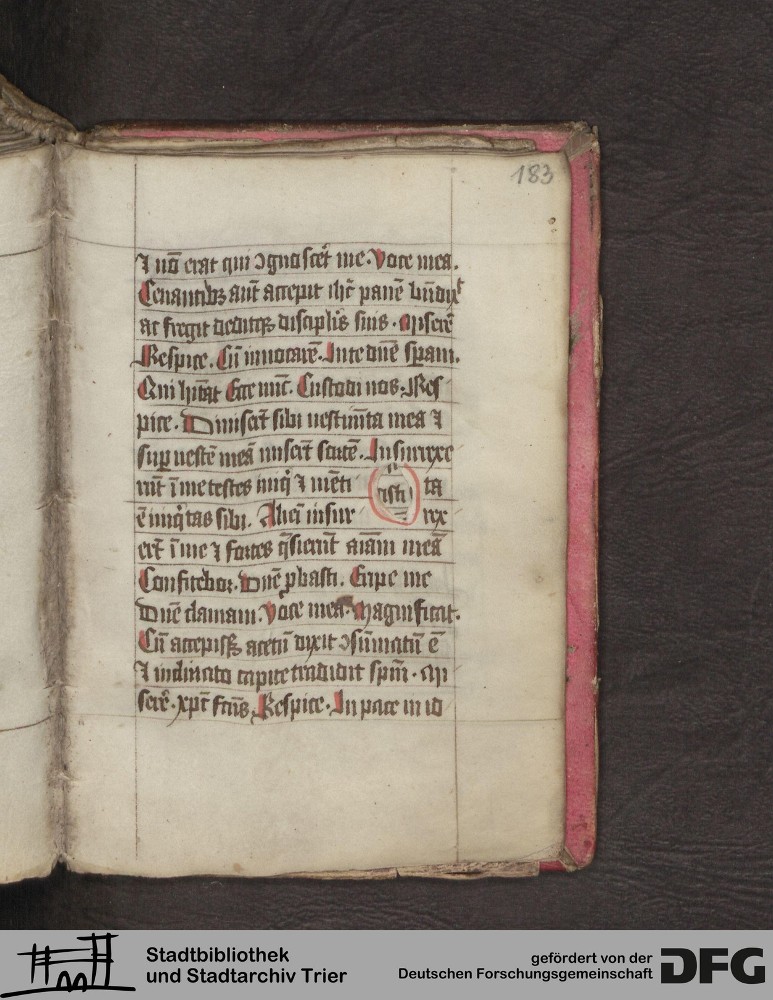 183
⁊ nō erat qui ꝯgnosceꝛ̄t me. Voce mea.
Cenantibꝫ aūt accepit ihc̄ panē bn̄dix̄it
ac fregit deditqꝫ discip̄lis suis. Miserē
Respice. Cū inuocarē. In te dn̄e sꝑaui.
Qui hītat Ecce nūc. Custodi nos. Res
pice. Diuiserūt sibi uestim̄ta mea ⁊
suꝑ uestē meā miserūt sortē. Insurrexe
rūt ī me testes iniqͥ ⁊ mēti ta
ē iniqͥtas sibi. Alieni insur rex
erūt ī me ⁊ fortes q̄sierūt aīam meā
Confitebor. Dn̄e ꝓbasti. Eripe me
Dn̄e clamaui. Voce mea. Magnificat.
Cū accepissꝫ acetū dixit ꝯsūmatū ē
⁊ inclinato capite tradidit sp̄m. Mi
serē. xp̄c fc̄us. Respice. In pace in id
Stadtbibliothek
und Stadtarchiv Trier
gefördert von der
Deutschen Forschungsgemeinschaft
DFG